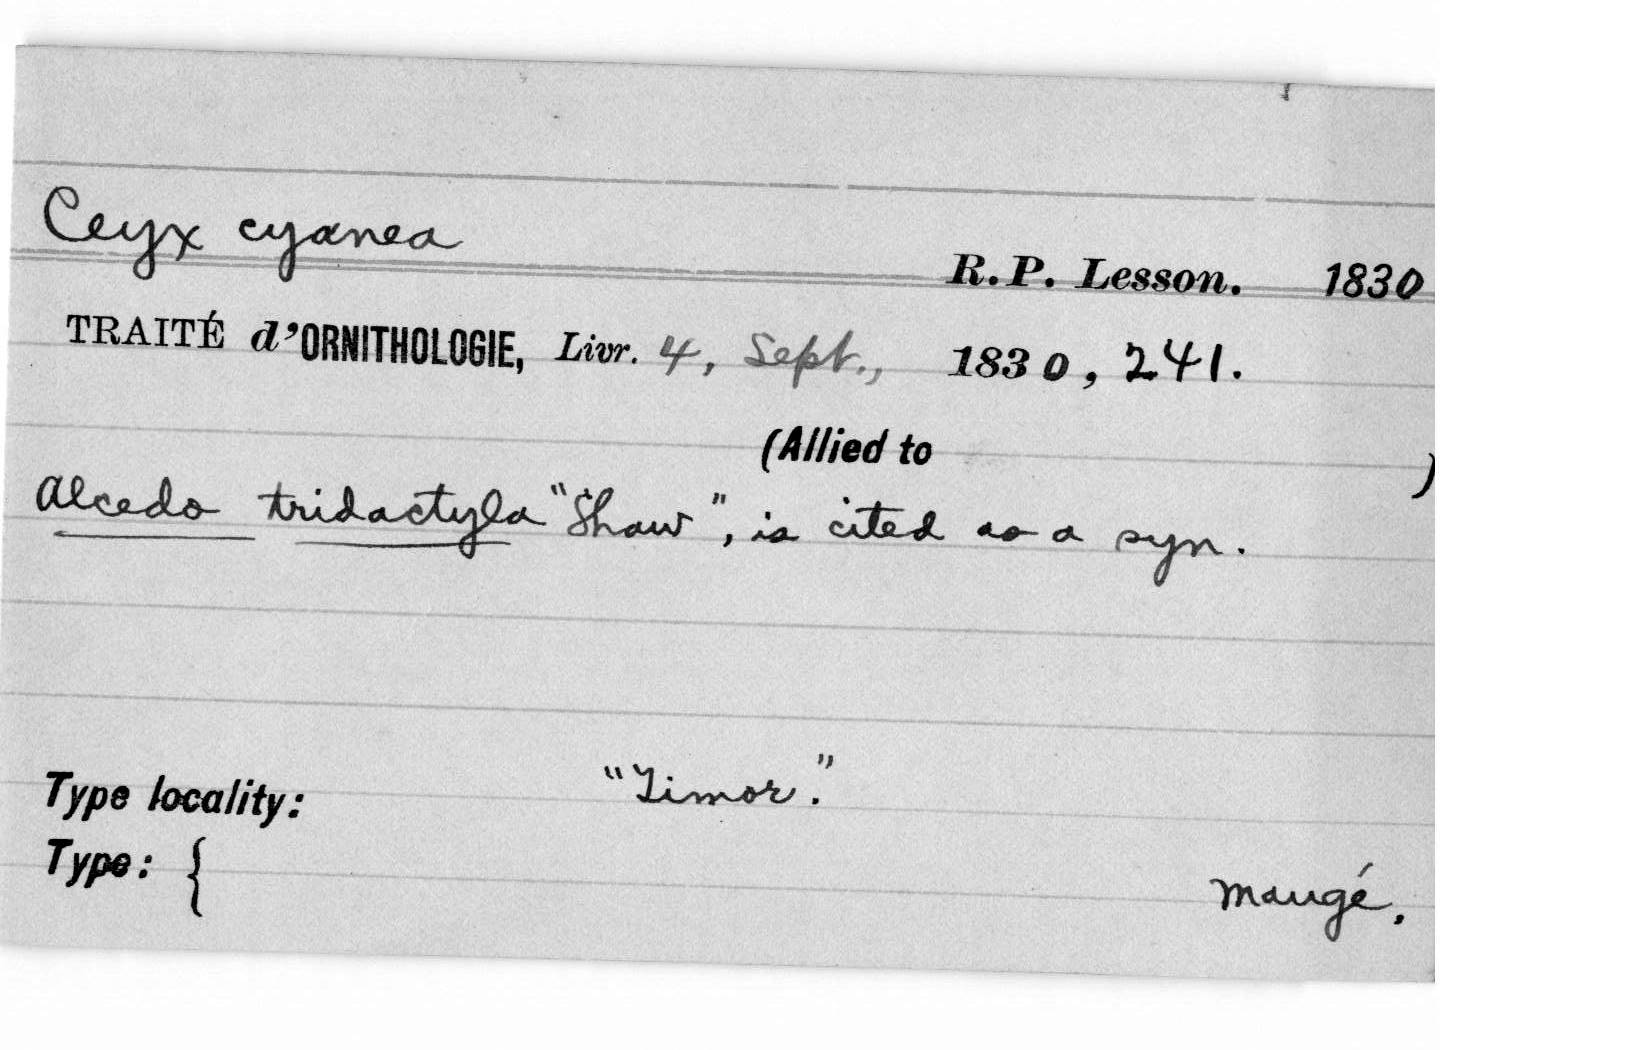 Ceyx cyanea
R.P. Lesson. 1830
TRAITÉ d'ORNITHOLOGIE, Livr. 4, Sept., 1830, 241.
(Allied to )
Alcedo tridactyla "Shaw", is cited as a syn.
Type locality: "Timor."
Type: {
Maugé.